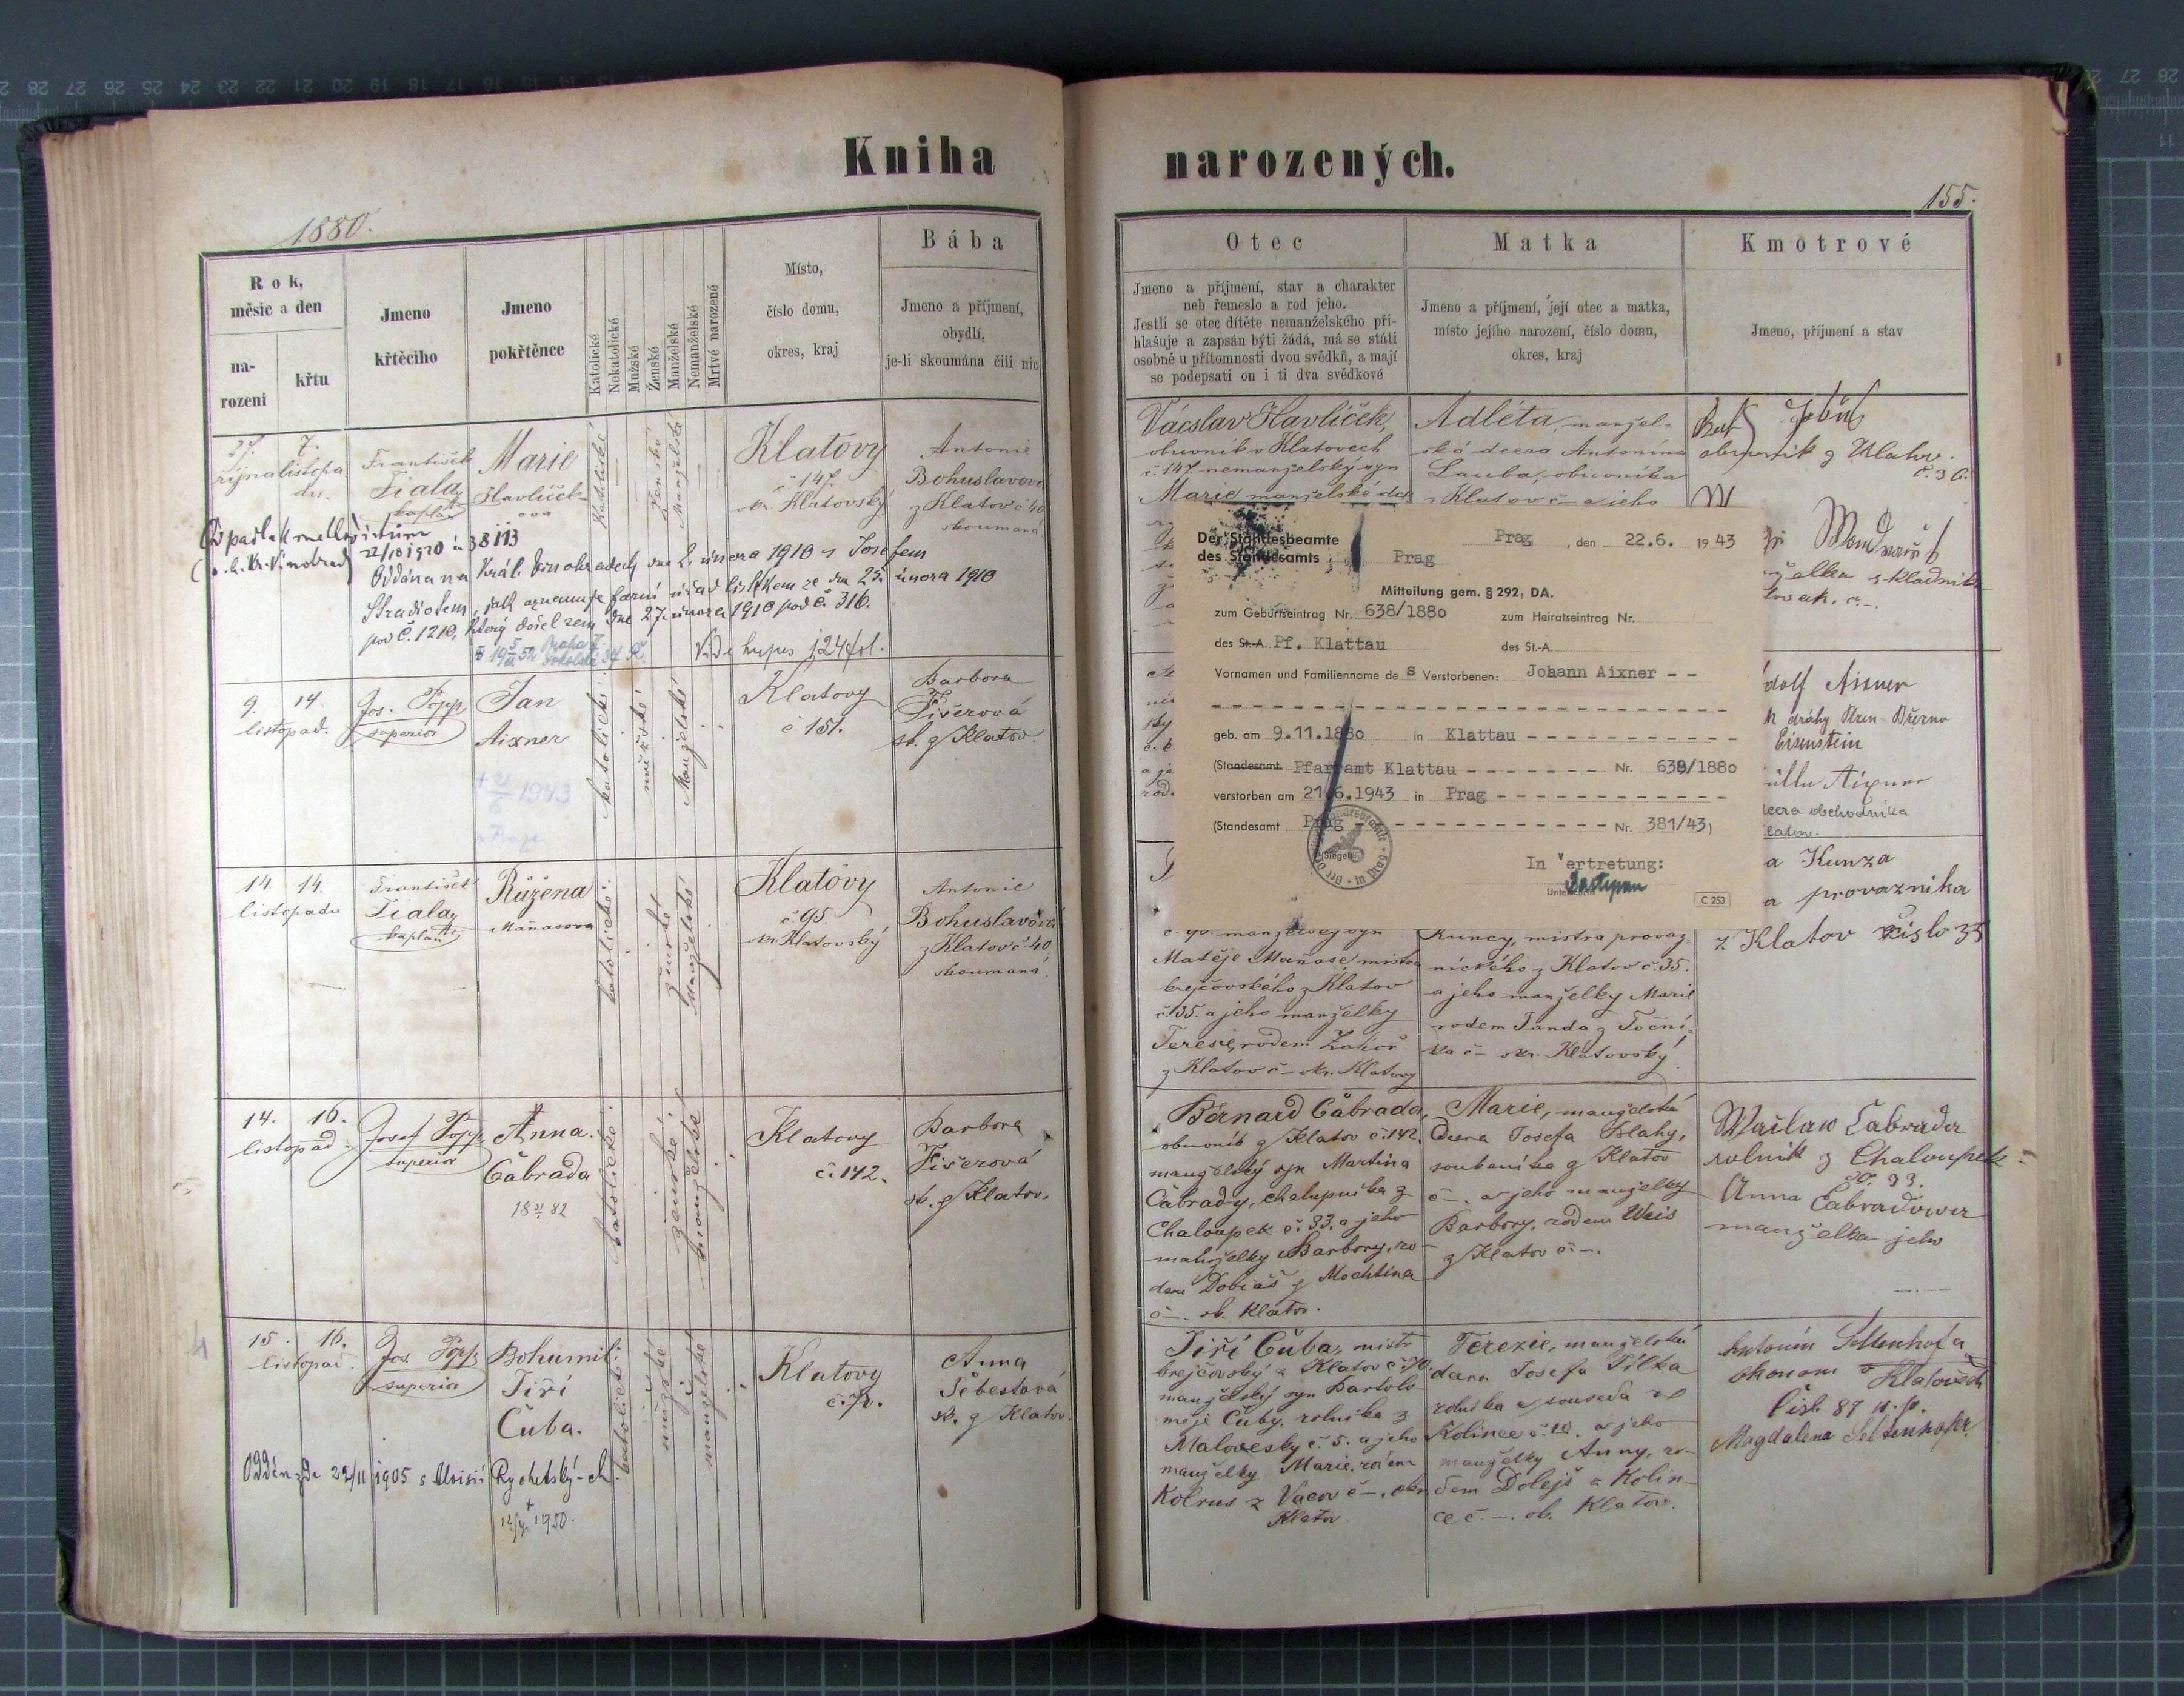 Kniha
narozených.
1880.
155.
Rok,
měsíc a den
na-
rození
křtu
Jmeno
křtěcího
Jmeno
pokřtěnce
Katolické
Nekatolické
Mužské
Ženské
Manželské
Nemanželské
Mrtvé narozené
Místo,
číslo domu,
okres, kraj
Bába
Jmeno a příjmení,
obydlí,
je-li skoumána čili nic
Otec
Jmeno a příjmení, stav a charakter
neb řemeslo a rod jeho.
Jestli se otec dítěte nemanželského při-
hlašuje a zapsán býti žádá, má se státi
osobně u přítomnosti dvou svědků, a mají
se podepsati on i ti dva svědkové
Matka
Jmeno a příjmení, její otec a matka,
místo jejího narození, číslo domu,
okres, kraj
Kmotrové
Jmeno, příjmení a stav
27. 7.
října listopa
du.
František
Fiala
kaplan
Marie
Havlíček-
ova
Katolické
Ženské
Manželské
Klatovy
č 147.
okr. Klatovský
Antonie
Bohuslavova
z Klatov č 40
skoumaná
22/10 1920 č 38113
Oddána na Král. Vinohradech dne 2. února 1910 s Josefem
Stradiotem, jak oznamuje farní úřad lístkem ze dne 25. února 1910
pod č. 1210, který došel sem dne 27. února 1910 pod č. 316.
Vide hujus 124 fol.
Václav Havlíček,
obuvník v Klatovech
č 147 nemanželský syn
Marie manželské dce
Adléta, manžel-
ská dcera Antonína
Lauba, obuvníka
z Klatov č – a jeho
obuvník z Klatov.
9. 14
listopad.
Jos. Popp,
superior
Jan
Aixner
katolické
mužské
Manželské
Klatovy
č 151.
Barbora
Fišerová
zk. z Klatov.
1943
v Praze
Der Standesbeamte
des Standesamts Prag
Prag, den 22.6. 1943
Mitteilung gem. § 292, DA.
zum Geburtseintrag Nr. 638/1880 zum Heiratseintrag Nr.
des St.-A. Pf. Klattau des St.-A.
Vornamen und Familienname des Verstorbenen: Johann Aixner - -
geb. am 9.11.1880 in Klattau
(Standesamt Pfarramt Klattau Nr. 638/1880
verstorben am 21.6.1943 in Prag
(Standesamt Prag Nr. 381/43)
(Siegel)
In Vertretung:
C 253
dolf Aixner
k dráhy Plzen-Březno
Eisenstein
dcera obchodníka
Klatov.
14 14.
listopadu
František
Fiala
kaplan
Růžena
Maňasova
katolické
ženské
Manželské
Klatovy
č 95.
okr. Klatovský
Antonie
Bohuslavová
z Klatov č 40
skoumaná.
Matěje Maňase, mistra
krejčovského z Klatov
č 135. a jeho manželky
Teresie, rodem Zahoř
z Klatov č – okr. Klatovy
Kuncy, mistra provaz-
nického z Klatov č. 35.
a jeho manželky Marie
rodem Janda z Toční-
ka č – okr. Klatovský.
a Kunza
a provazníka
z Klatov číslo 35
14. 16.
listopad
Josef Popp,
superior
Anna.
Čabrada
katolické
ženské
manželské
Klatovy
č. 142.
Barbora
Fišerová
zk. z Klatov.
Bernard Čabrada,
obuvník z Klatov č. 142,
manželský syn Martina
Čabrady, chalupníka z
Chaloupek č. 33. a jeho
manželky Barbory, ro-
dem Dobiáš z Mochtína
č –. ok. Klatov.
Marie, manželská
dcera Josefa Blahy,
soukeníka z Klatov
č –. a jeho manželky
Barbory, rodem Weis
z Klatov č. –.
Wáclaw Čabrada
rolník z Chaloupek
No. 33.
Anna Čabradowa
manželka jeho
15. 16.
listopad.
Jos. Popp,
superior
Bohumil
Jiří
Čuba.
katolické
mužské
manželské
Klatovy
č. 70.
Anna
Šebestová
zk. z Klatov.
Oddán zde 22/11 1905 s Aloisií Rychetský-ch.
1950.
Jiří Čuba, mistr
krejčovský z Klatov č. 70.
manželský syn Bartolo-
měje Čuby, rolníka z
Malovesky č. 5. a jeho
manželky Marie, rodem
Kolrus z Vacov č –. okr.
Klatov.
Terezie, manželská
dcera Josefa Pilka
rolníka a souseda z
Kolince č. 10. a jeho
manželky Anny, ro-
dem Dolejš z Kolin-
ce č. –. ok. Klatov.
Antonín Seltenhofa
ekonom v Klatovech
Čísl. 87 p. p.
Magdalena Seltenhofer